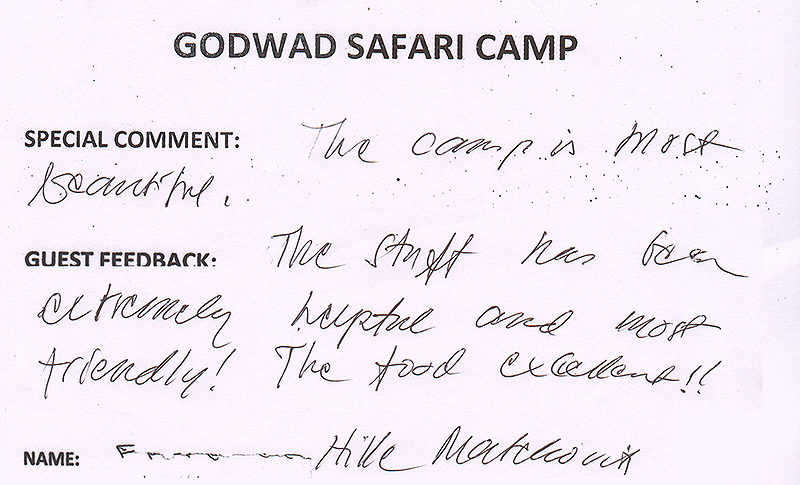 GODWAD SAFARI CAMP
SPECIAL COMMENT: The camp is most
beautiful.
GUEST FEEDBACK: The staff has been
extremely helpful and most
friendly! The food excellent!!
NAME: Hille